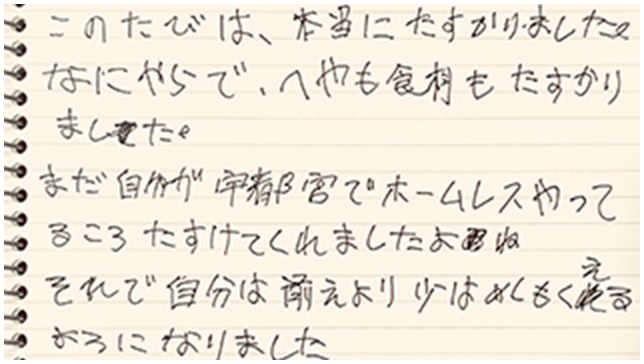 このたびは、本当にたすかりました。
なにやらで、へやも食料もたすかり
ました。
まだ自分が宇都宮でホームレスやって
るころたすけてくれましたよね
それで自分は前えより少はめしもくえる
ようになりました